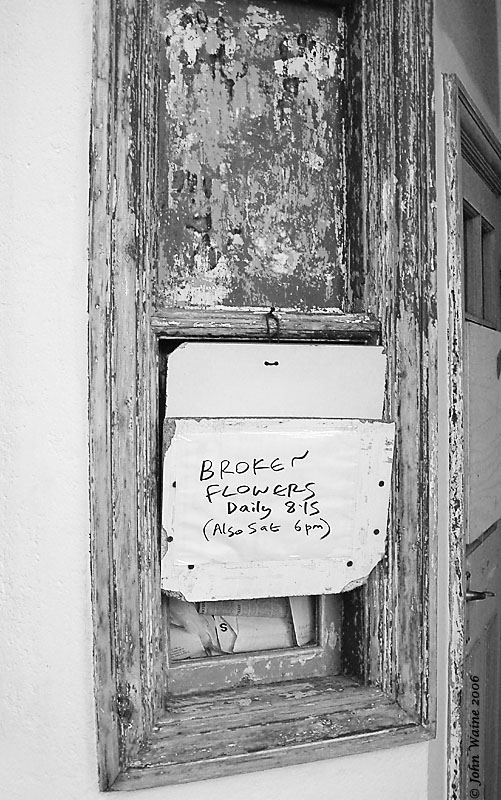 BROKEN
FLOWERS
Daily 8.15
(Also Sat 6pm)
S
© John Waine 2006